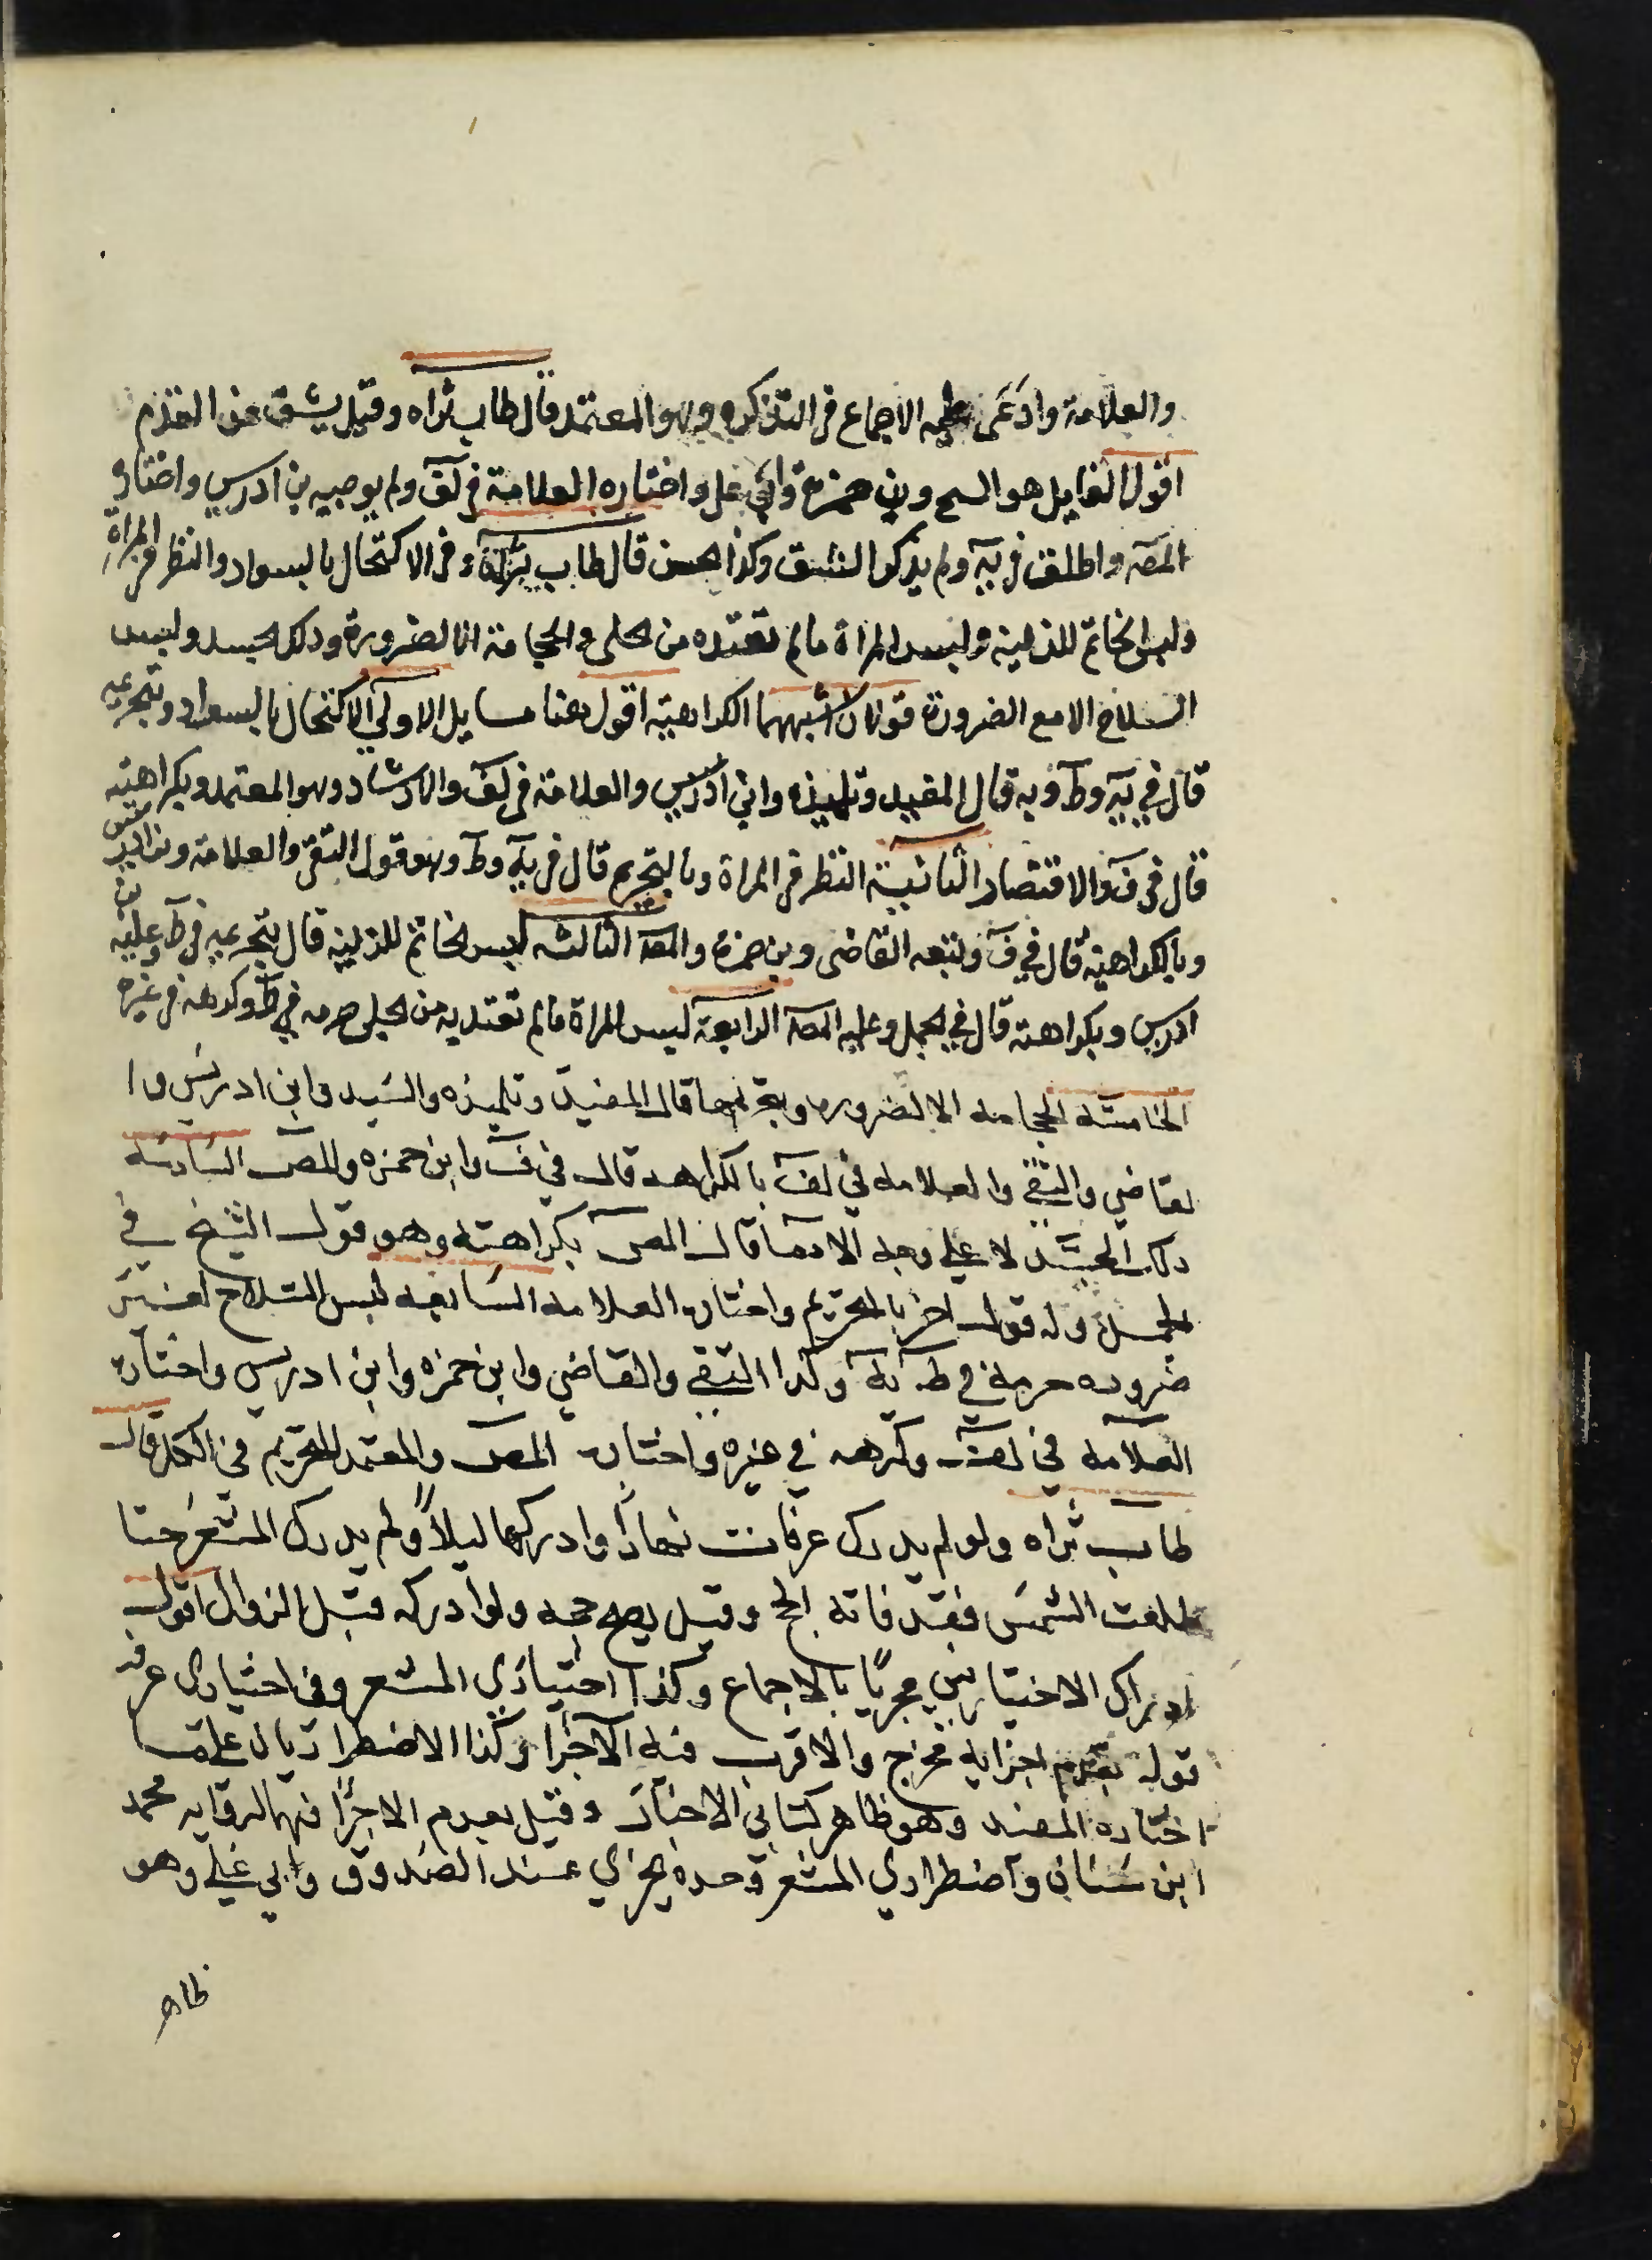 والعلامة وادعى عليه الاجماع في التذكره وهو المعتمد قال طاب ثراه وقيل يشق عن القدم
اقول القايل هو الشيخ وبن حمزة وابي علي واختاره العلامة في لف ولم يوجبه بن ادريس واختاره
المصه واطلق في يه ولم يذكر الشق وكذا الحسن قال طاب ثراه وفي الاكتحال بالسواد والنظر في المراة
ولبس الخاتم للزينة ولبس المراة ما لم تعتده من الحلي والحجامة الا لضرورة ودلك الجسد ولبس
السلاح الا مع الضرورة قولان اشبههما الكراهية اقول هنا مسايل الاولى الاكتحال بالسواد وبتحريمه
قال في يه وط وبه قال المفيد وتلميذه وابن ادريس والعلامة في لف والارشاد وهو المعتمد وبكراهيته
قال في ف والاقتصاد الثانية النظر في المراة وبالتحريم قال في يه وط وهو قول التقي والعلامة وبن ادريس
وبالكراهية قال في ف وتبعه القاضي وبن حمزة والمصه الثالثه لبس الخاتم للزينة قال بتحريمه في ط وعليه بن
ادريس وبكراهته قال في الجمل وعليه المصه الرابعة لبس المراة ما لم تعتد به من الحلي حرمه في ط وكرهه في غيره
الخامسه الحجامه الا لضروره وبتحريمها قال المفيد وتلميذه والسيد وابن ادريس وا
لقاضي والتقي والعلامه في لف بالكراهه قال في ف وابن حمزه والمص السادسه
دلك الجسد لا على وجه الادما قال المص بكراهته وهو قول الشيخ في
الجمل وله قول اخر بالتحريم واختاره العلامه السابعه لبس السلاح لغير
ضروره حرمه في ط يه وكذا التقي والقاضي وابن حمزه وابن ادريس واختاره
العلامه في لف وكرهه في غيره واختاره المص والمعتمد التحريم في الكل قال
طاب ثراه ولو لم يدرك عرفات نهارا وادركها ليلا ولم يدرك المشعر حتا
طلعت الشمس فقد فاته الحج وقيل يصح حجه ولو ادركه قبل الزوال اقول
ادراك الاختيارين مجزيا بالاجماع وكذا اختياري المشعر وفي اختياري عرفه
قوله بعدم اجزايه مخرج والاقرب فيه الاجزا وكذا الاضطراريان على ما
اختاره المفيد وهو ظاهر كتابي الاخبار وقيل بعدم الاجزا فيهما لرواية محمد
ابن سنان واضطراري المشعر وحده يجزي عند الصدوق وابي علي وهو
ظاهر